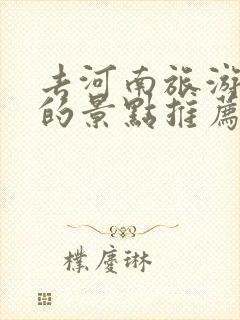 去河南旅游
的景點推薦
樸慶琳